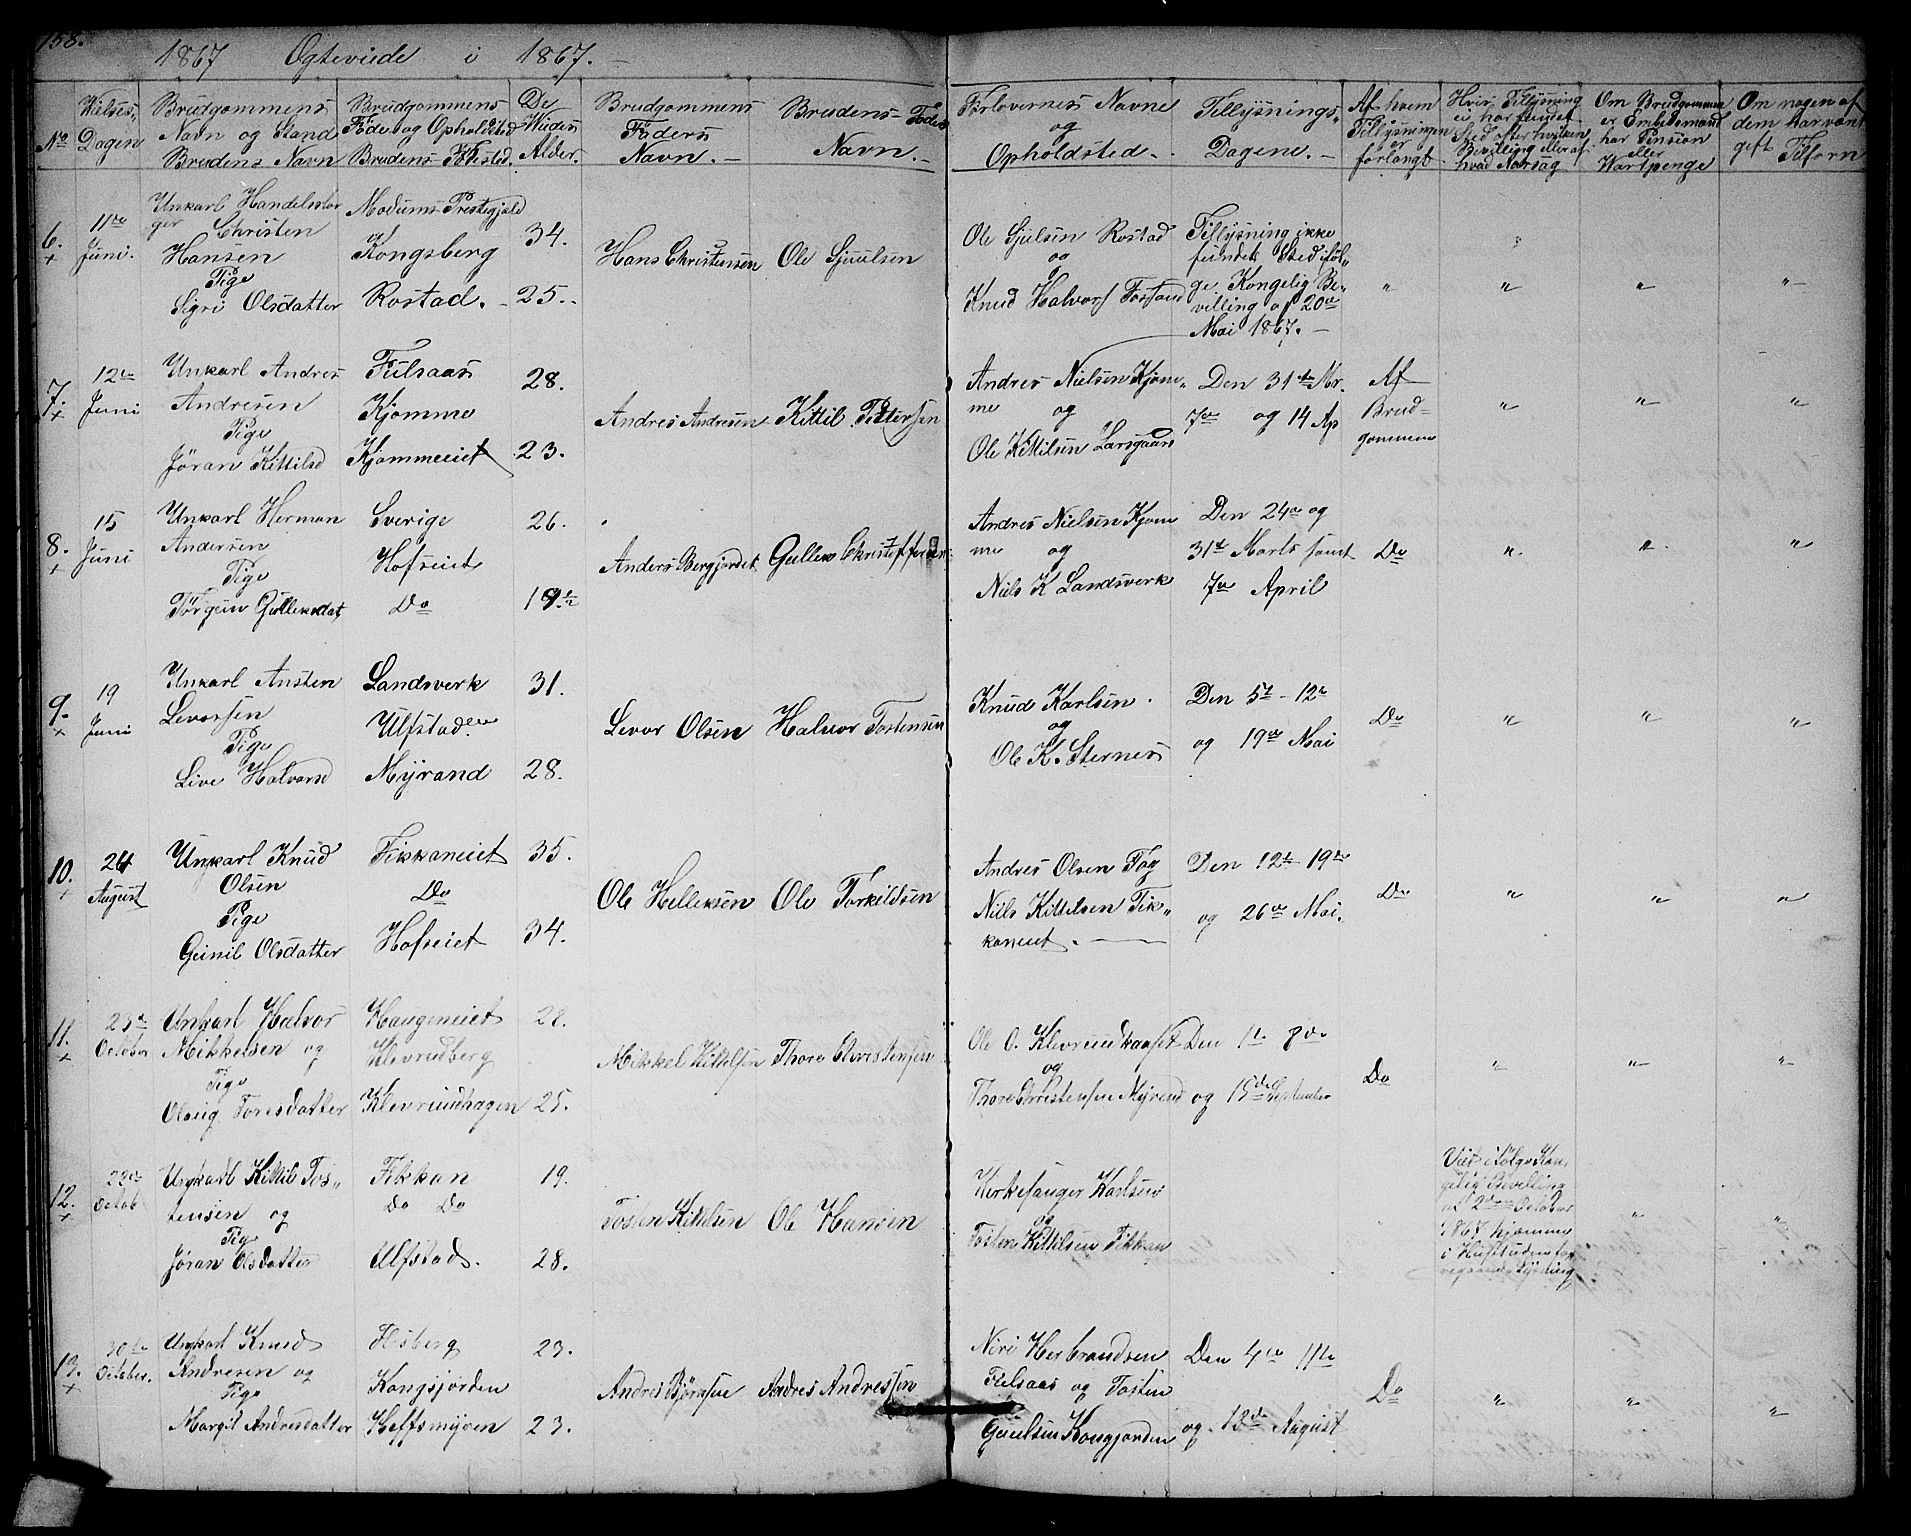 158.
1867 Ogteviede i 1867. –
No
Vielses„ Dagen
Brudgommens Navn og Stand Brudens Navn
Brudgommens Føde og Opholdsted Brudens Fødested.
De Viedes Alder.
Brudgommens Faders Navn. –
Brudens Faders Navn. –
Forlovernes Navne og Opholdsted. –
Tillysnings„ Dagene. –
Af hvem Tillysningen er forlangt
Hvis Tillysning ei har fundet Sted efter hvilken Bevilling eller af hvad Aarsag
Om Brudgommen er Embedsmand har Pension eller Vartpenge
Om nogen af dem har vært gift Tilforn
6. 11te Juni.
Unkarl Handelsbor
ger Christen
Hansen
Pige
Sigri Olsdatter
Modums Prestegjeld
Kongsberg
Rostad. –
34.
25. –
Hans Christensen
Ole Sjuulsen
Ole Sjulsen Rostad
og
Knud Halvors Fossan
Tillysning ikke
fundet Sted iføl„
ge Kongelig Be„
villing af 20de
Mai 1867. –
„ „ „ „
7. 12te Juni
Unkarl Andres
Andresen
Pige
Jøran Kittilsd
Fulsaas
Kjomme
Kjommeeiet
28.
23.
Andres Andresen
Kittil Pettersen
Andres Nielsen Kjom„
me og
Ole Kittilsen Larsgaard
Den 31te Mr.
7de og 14 Ap
Af
Brud–
gommen
„ „ „
8. 15 Juni
Unkarl Herman
Andersen
Pige
Torgun Gulleksdat
Sverige
Hofseiet
Do
26.
19½
Anders Bergjordet
Gullek Christoffersen
Andres Nielsen Kjom
me og
Niels K Landsverk
Den 24de og
31te Marts samt
7de April
Do
„ „ „
9. 19 Juni
Unkarl Ansten
Levorsen
Pige
Live Halvorsd
Landsverk
Ulfstad
Myrand
31.
28.
Levor Olsen
Halvor Tostensen
Knud Karlsen.
og
Ole K. Sternes
Den 5te – 12te
og 19de Mai
Do
„ „ „
10. 24 August
Unkarl Knud
Olsen
Pige
Gunil Olsdatter
Fikkaneiet
Do
Hofseiet
35.
34.
Ole Helleksen
Ole Torkildsen
Andres Olsen Fog
Niels Kittelsen Fik„
kaneiet. –
Den 12te 19de
og 26de Mai.
Do
„ „ „
11. 23de October
Unkarl Halvor
Mikkelsen og
Pige
Olaug Toresdatter
Haugeneiet
Klevrudberg
Klevruudhagen
28.
25.
Mikkel Kittelsen
Thore Christensen
Ole O. Klevruud
og
Thore Christensen Myrand
Den 1te 8de
og 15de September
Do
„ „ „
12. 22de Octob
Ungkarl Kittil Tos„
tensen og
Pige
Jøran Olsdatter
Fikkan
Do Do
Ulfstad.
19.
28.
Tosten Kittelsen
Ole Hansen
Kirkesanger Karlsen
og
Tosten Kittilsen Fikkan
Viet ifølge Kon„
gelig Bevilling
af 2den October
1867 hjemme
i Huset uden for
regaaende Lysning
„ „
13. 30te October.
Ungkarl Knud
Andresen og
Pige
Margit Andresdatter
Flesberg
Kongsjorden
Hoffsmyren
23.
23.
Andres Børesen
Andres Andressen
Niri Herbrandsen
Fulsaas og Tosten
Guulsen Kongjorden
Den 4de 11te
og 18de August
Do
„ „ „